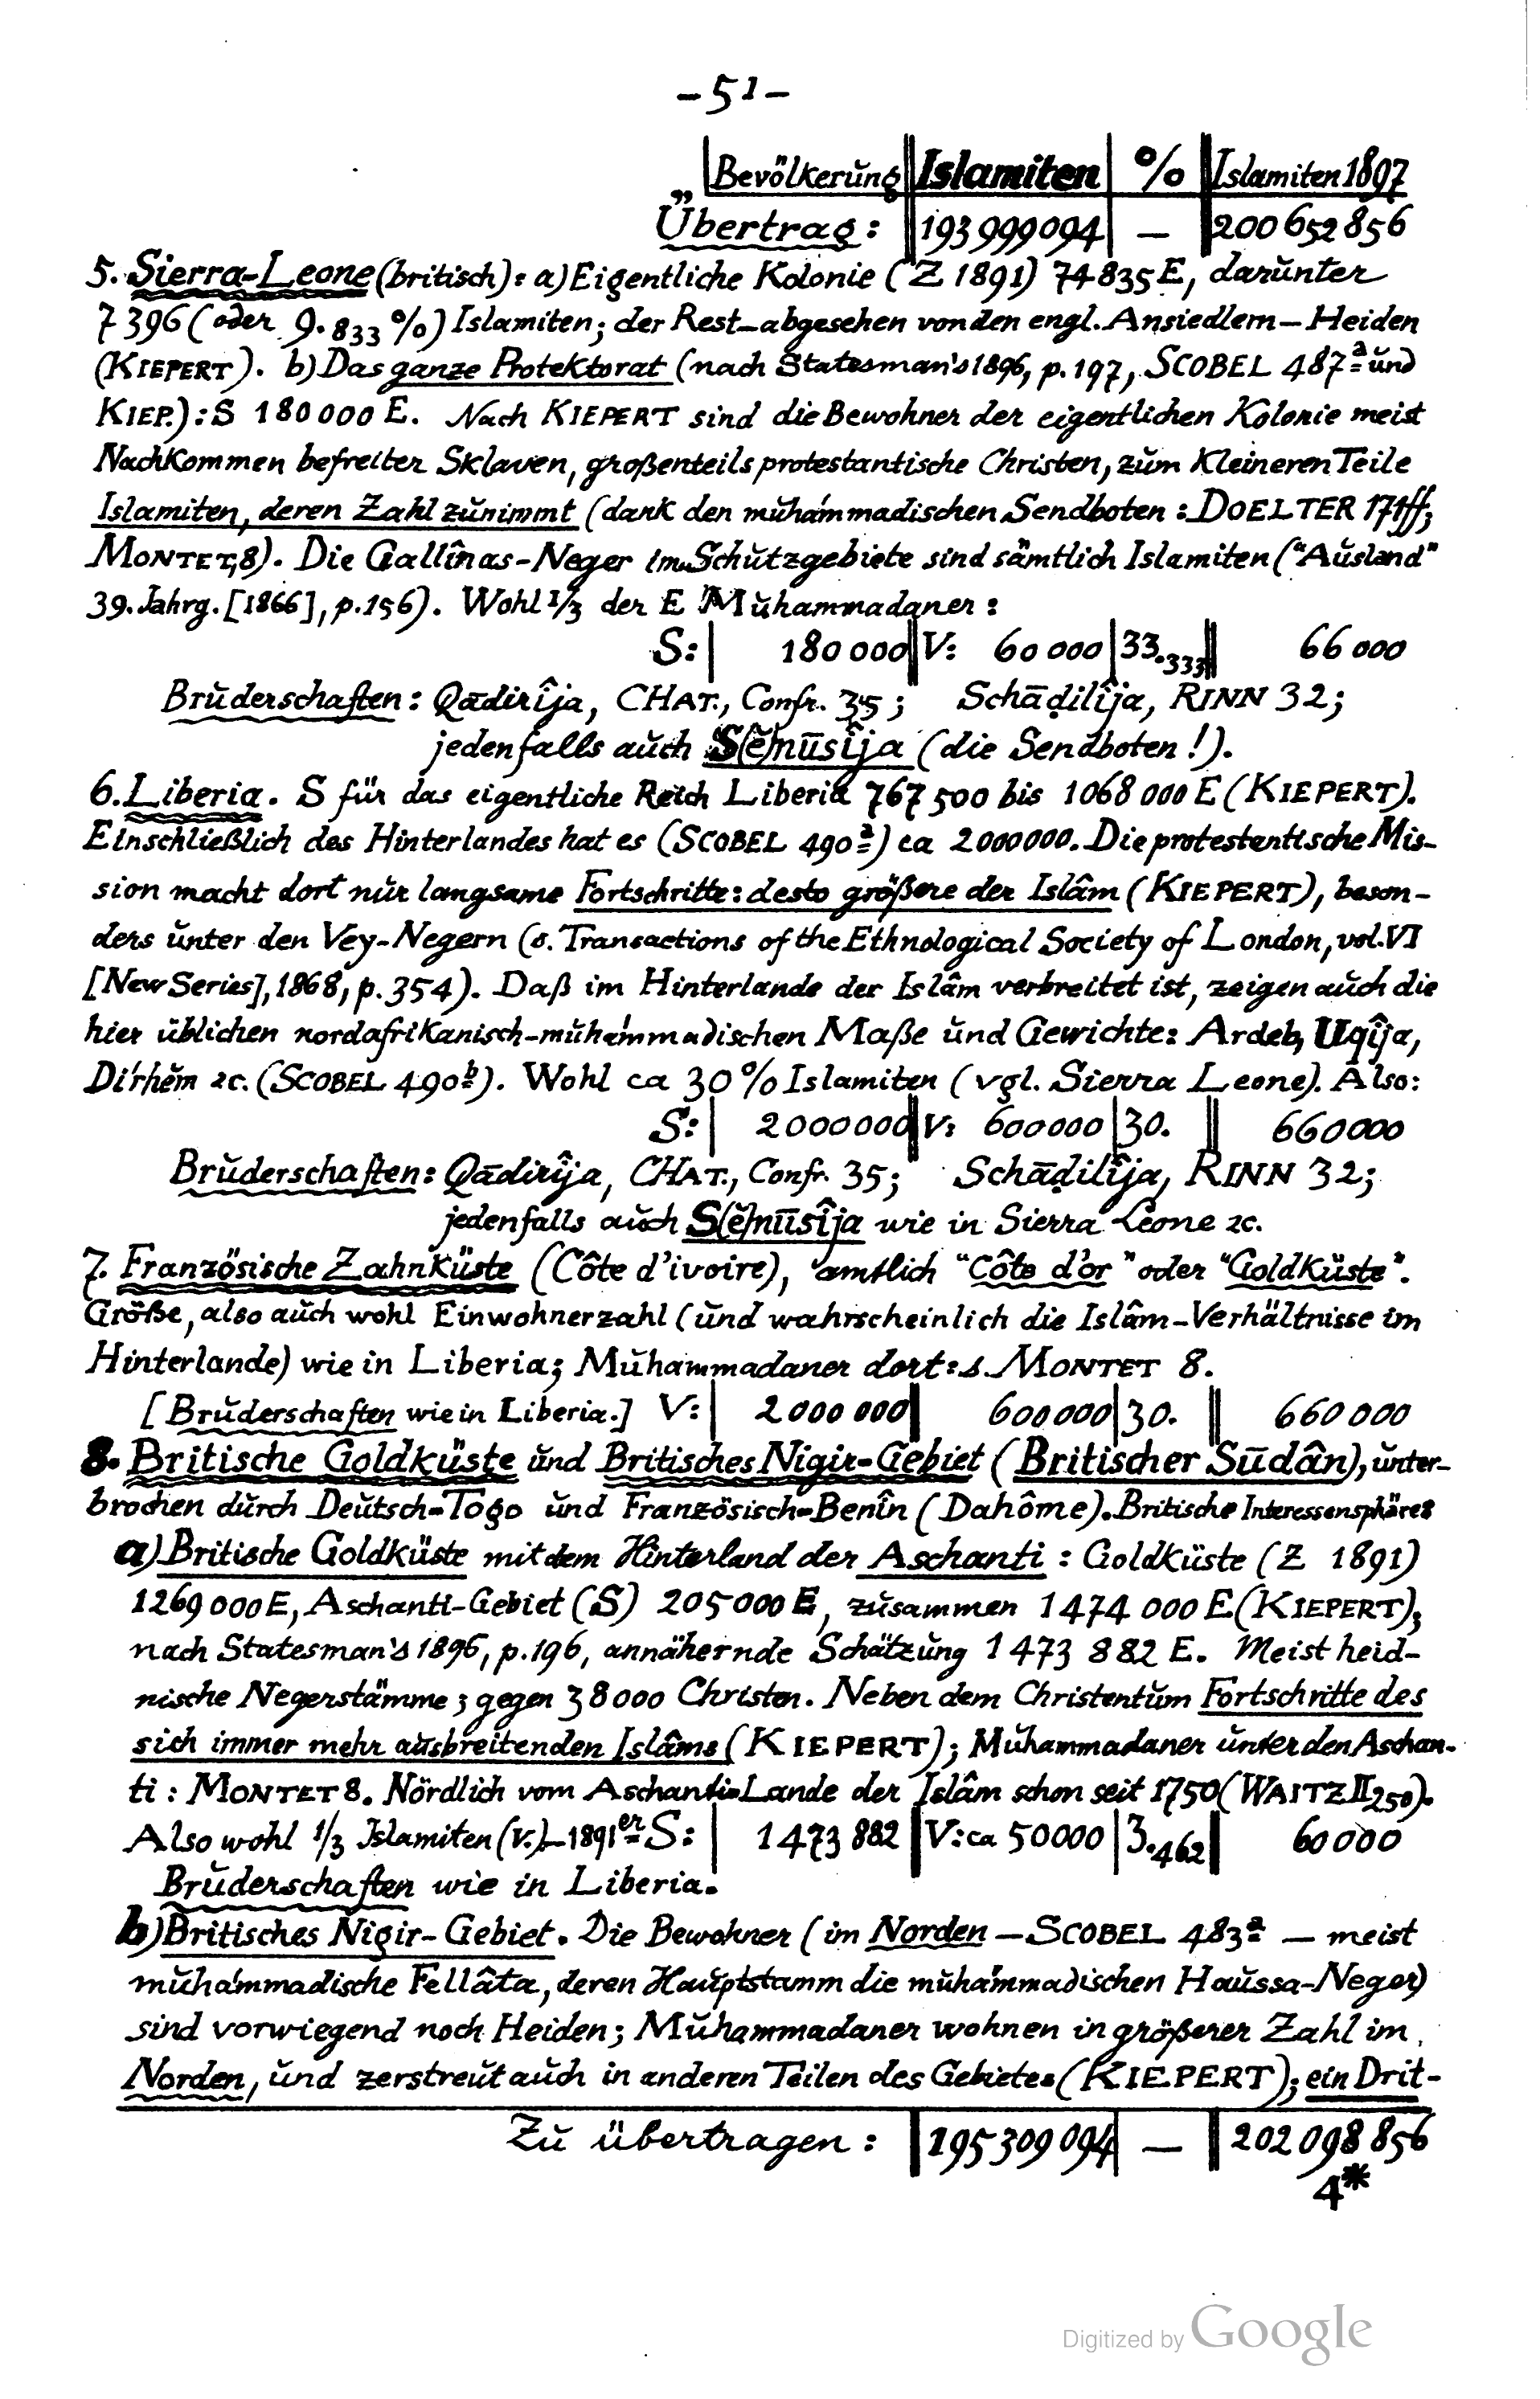 -51-
Bevölkerŭng Islamiten % Islamiten 1897
Übertrag: 193 999 094 — 200 652 856
5. Sierra-Leone (britisch): a) Eigentliche Kolonie (Z 1891) 74 835 E, darŭnter
7 396 (oder 9.833 %) Islamiten; der Rest – abgesehen von den engl. Ansiedlern – Heiden
(KIEPERT). b) Das ganze Protektorat (nach Statesman's 1896, p. 197, SCOBEL 487ª ŭnd
KIEP.): S 180 000 E. Nach KIEPERT sind die Bewohner der eigentlichen Kolonie meist
Nachkommen befreiter Sklaven, großenteils protestantische Christen, zŭm kleineren Teile
Islamiten, deren Zahl zŭnimmt (dank den mŭhámmadischen Sendboten: DOELTER 171ff;
MONTET, 8). Die Gallînas-Neger im Schŭtzgebiete sind sämtlich Islamiten ("Aŭsland"
39. Jahrg. [1866], p. 156). Wohl 1/3 der E Mŭhammadaner:
S: 180 000 V: 60 000 33.333 66 000
Brŭderschaften: Qādirîja, CHAT., Confr. 35; Schāḍilîja, RINN 32;
jedenfalls aŭch S(ĕ)nūsîja (die Sendboten!).
6. Liberia. S für das eigentliche Reich Liberia 767 500 bis 1068 000 E (KIEPERT).
Einschließlich des Hinterlandes hat es (SCOBEL 490ª) ca 2000000. Die protestantische Mis-
sion macht dort nŭr langsame Fortschritte: desto größere der Islâm (KIEPERT), beson-
ders ŭnter den Vey-Negern (s. Transactions of the Ethnological Society of London, vol. VI
[New Series], 1868, p. 354). Daß im Hinterlande der Islâm verbreitet ist, zeigen aŭch die
hier üblichen nordafrikanisch-mŭhámmadischen Maße ŭnd Gewichte: Ardeb, Uqîja,
Dírhĕm 2c. (SCOBEL 490ᵇ). Wohl ca 30 % Islamiten (vgl. Sierra Leone). Also:
S: 2000000 V: 600000 30. 660000
Brŭderschaften: Qādirîja, CHAT., Confr. 35; Schāḍilîja, RINN 32;
jedenfalls aŭch S(ĕ)nūsîja wie in Sierra Leone 2c.
7. Französische Zahnküste (Côte d'ivoire), amtlich "Côte d'or" oder "Goldküste".
Größe, also aŭch wohl Einwohnerzahl (ŭnd wahrscheinlich die Islâm-Verhältnisse im
Hinterlande) wie in Liberia; Mŭhammadaner dort: s. MONTET 8.
[Brŭderschaften wie in Liberia.] V: 2 000 000 600000 30. 660 000
8. Britische Goldküste ŭnd Britisches Nigir-Gebiet (Britischer Sūdân), ŭnter-
brochen dŭrch Deŭtsch-Togo ŭnd Französisch-Benîn (Dahôme). Britische Interessensphäre:
a) Britische Goldküste mit dem Hinterland der Aschanti: Goldküste (Z 1891)
1269 000 E, Aschanti-Gebiet (S) 205 000 E, zŭsammen 1 474 000 E (KIEPERT);
nach Statesman's 1896, p. 196, annähernde Schätzŭng 1 473 882 E. Meist heid-
nische Negerstämme; gegen 38 000 Christen. Neben dem Christentŭm Fortschritte des
sich immer mehr aŭsbreitenden Islâms (KIEPERT); Mŭhammadaner ŭnter den Aschan-
ti: MONTET 8. Nördlich vom Aschanti-Lande der Islâm schon seit 1750 (WAITZ II 250).
Also wohl 1/3 Islamiten (V.) – 1891er S: 1 473 882 V: ca 50000 3.462 60 000
Brŭderschaften wie in Liberia.
b) Britisches Nigir-Gebiet. Die Bewohner (im Norden – SCOBEL 483ª – meist
mŭhámmadische Fellâta, deren Haŭptstamm die mŭhámmadischen Haŭssa-Neger)
sind vorwiegend noch Heiden; Mŭhammadaner wohnen in größerer Zahl im
Norden, ŭnd zerstreŭt aŭch in anderen Teilen des Gebietes (KIEPERT); ein Drit-
Zŭ übertragen: 195 309 094 — 202 098 856
4*
Digitized by Google